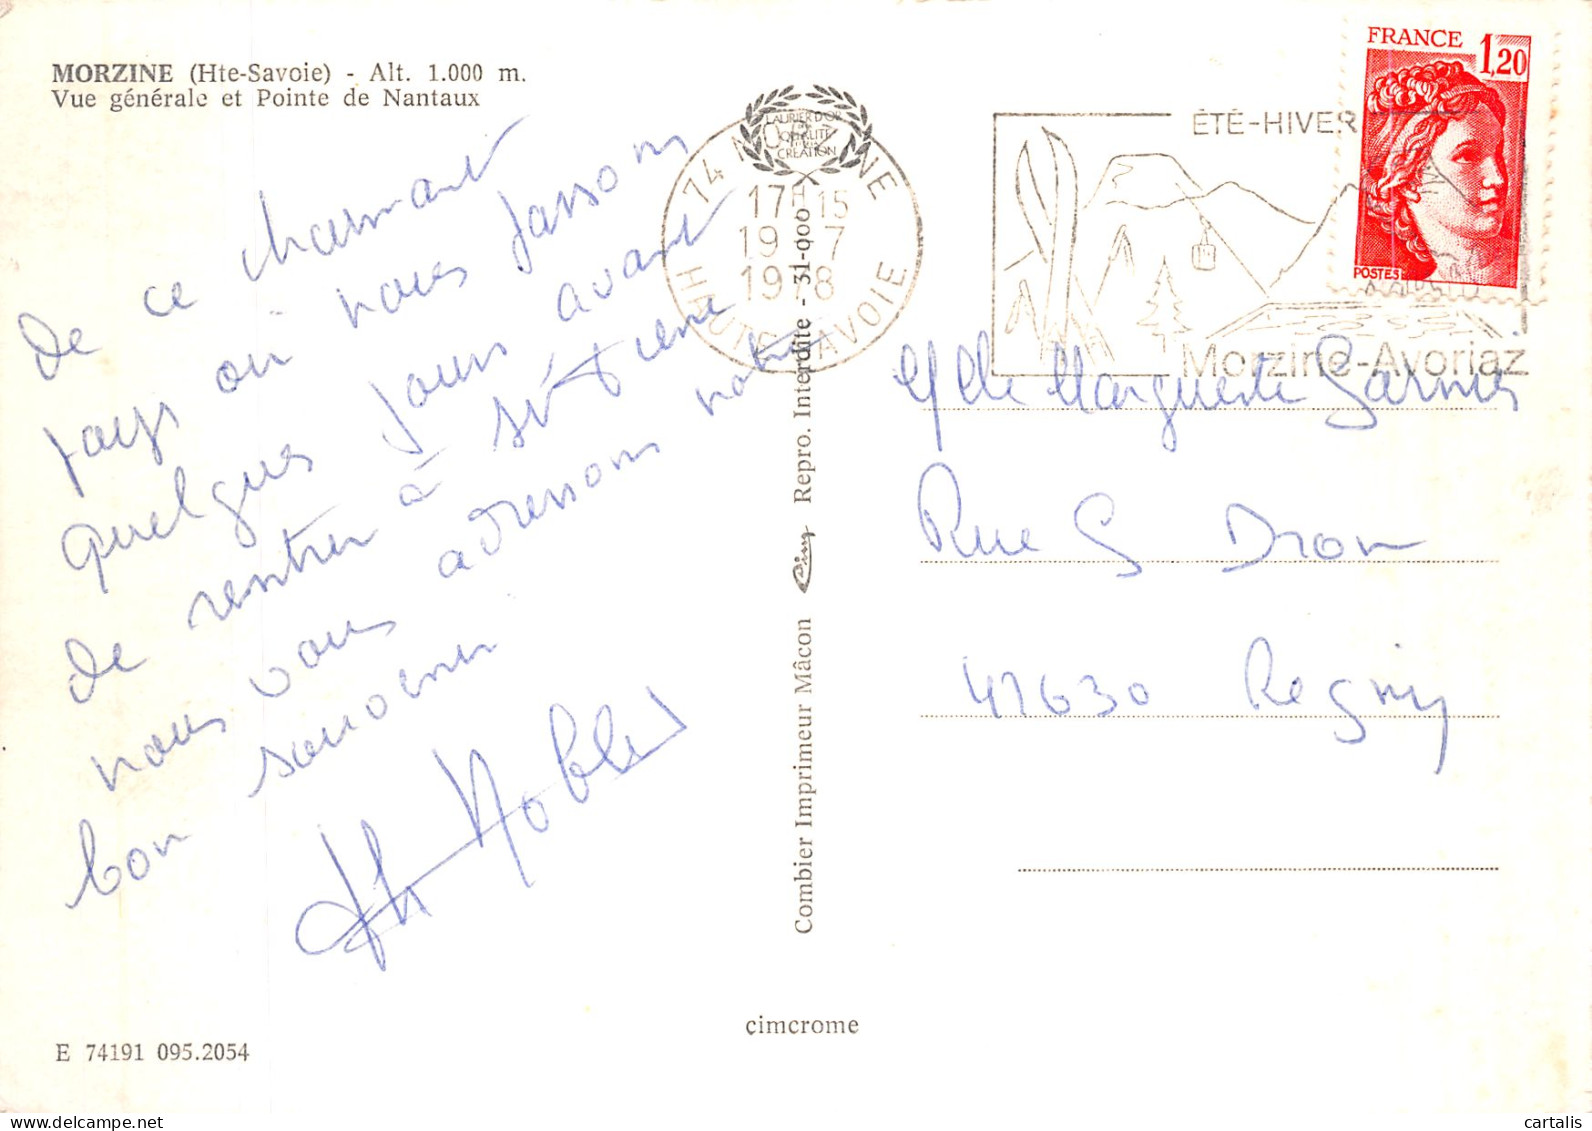 MORZINE (Hte-Savoie) - Alt. 1.000 m.
Vue générale et Pointe de Nantaux
De ce charmant
pays où nous passons
quelques jours avant
de rentrer à St Etienne
nous vous adressons notre
bon souvenir
E 74191 095.2054
cimcrome
Combier Imprimeur Mâcon Cim Repro. Interdite - 31-000
LAURIER D'OR
QUALITÉ
CRÉATION
74 M NE
17H15
19 7
1978
HAUTE SAVOIE
ÉTÉ-HIVER
Morzine-Avoriaz
FRANCE 1,20
POSTES
Mlle Marguerite Garnier
Rue G Dron
42630 Regny